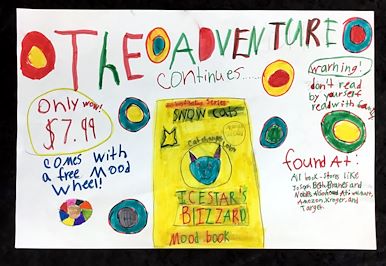 The ADVENTURE
continues......
Only wow!
$7.99
comes with
a free Mood
Wheel!
warning!
don't read
by yourself
read with family
Series
SNOW Cats
Cat changes color
ICESTAR'S
BLIZZARD
Mood book
found At:
All book-stores LIKE
Barnes and
Noble,
Amazon, Kroger, and
Target.